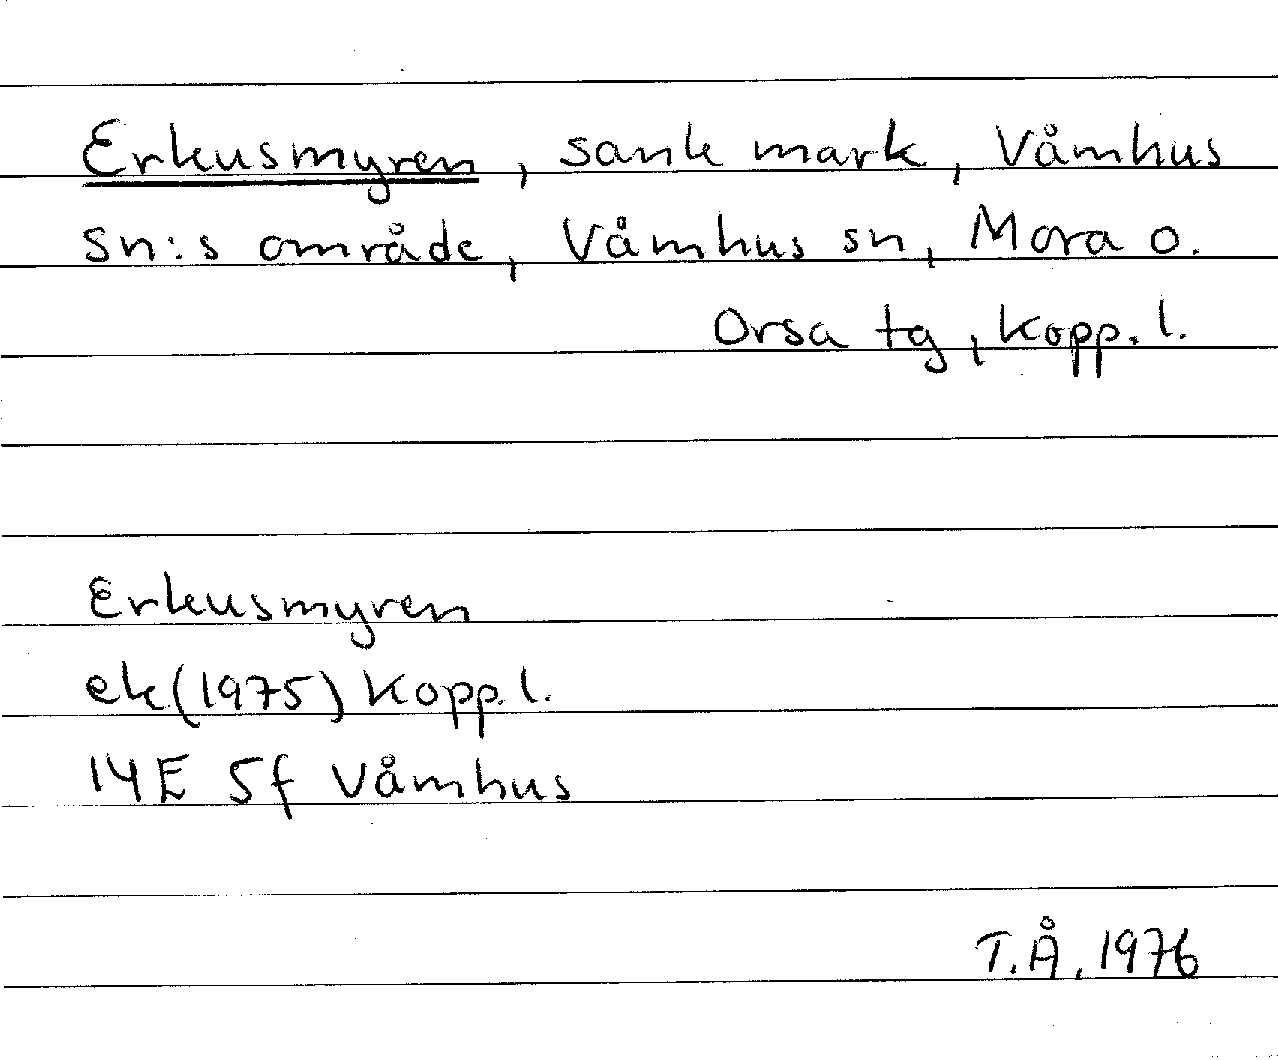 Erkusmyren, sank mark, Våmhus
sn:s område, Våmhus sn, Mora o.
Orsa tg, Kopp. l.
Erkusmyren
ek (1975) Kopp. l.
14E 5f Våmhus
T.Å. 1976